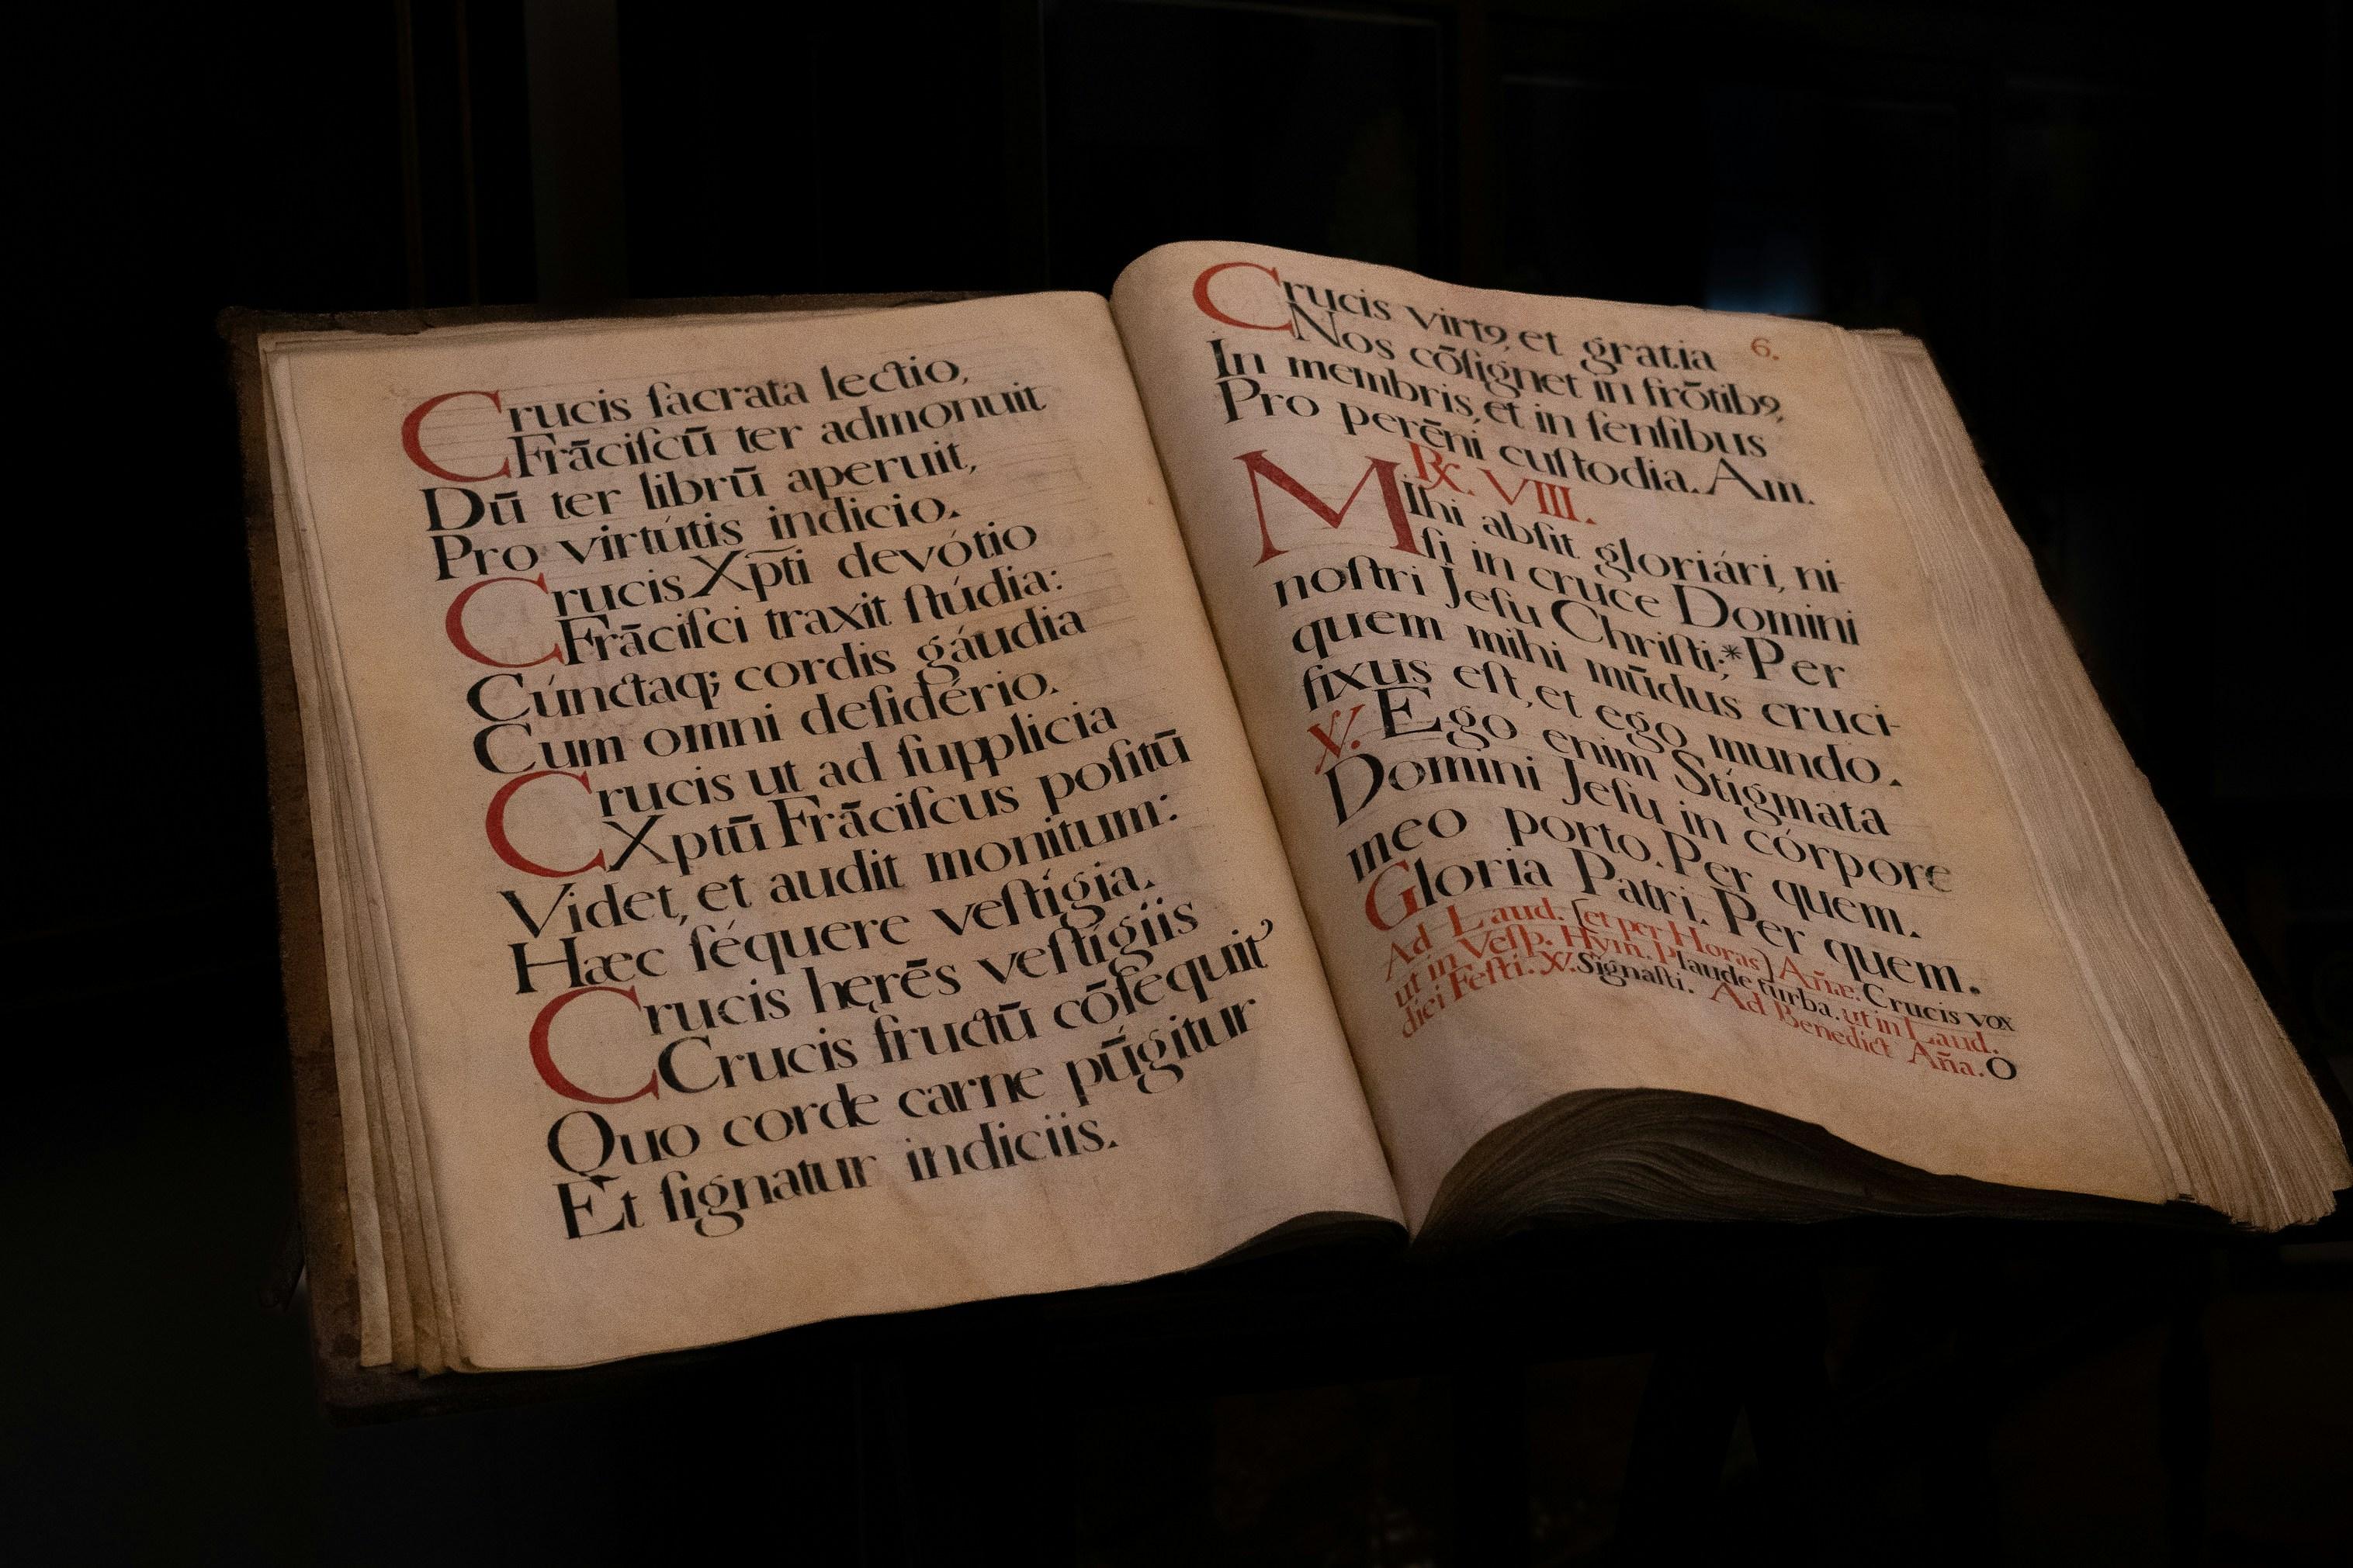 Crucis ſacrata lectio,
Frāciſcū ter admonuit
Dū ter librū aperuit,
Pro virtútis indicio.
Crucis Xp̄ti devótio
Frāciſci traxit ſtúdia:
Cúnctaq; cordis gáudia
Cum omni deſidério.
Crucis ut ad ſupplicia
Xptū Frāciſcus poſitū
Videt, et audit monitum:
Hæc ſéquere veſtígia.
Crucis hęrēs veſtígiis
Crucis fructū cōſequit᾽
Quo corde carne pūgitur
Et ſignatur indiciis.
6.
Crucis virtꝯ, et gratia
Nos cōſignet in frōtibꝯ,
In membris, et in ſenſibus
Pro perēni cuſtodia. Am.
℞. VIII.
Mihi abſit gloriári, ni-
ſi in cruce Domini
noſtri Jeſu Chriſti;* Per
quem mihi mūdus cruci-
fixus eſt, et ego mundo.
℣. Ego enim Stigmata
Domini Jeſu in córpore
meo porto. Per quem.
Gloria Patri. Per quem.
Ad Laud. (et per Horas) Añæ. Crucis vox
ut in Veſp. Hym. Plaude turba. ut in Laud.
diei Feſti. ℣. Signaſti. Ad Benedict Aña. O